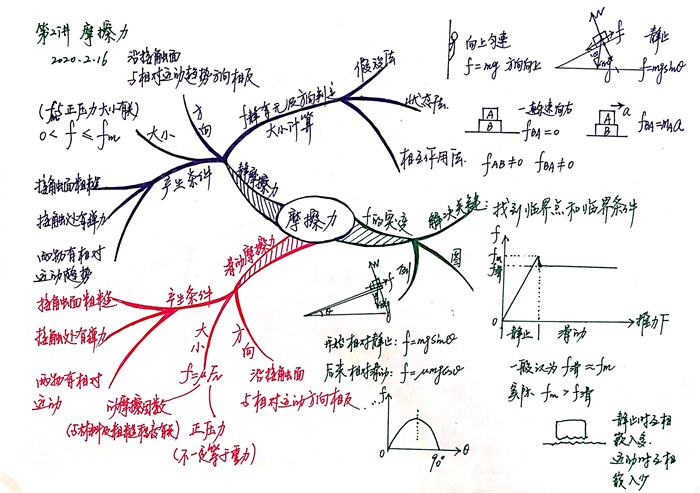 第2讲 摩擦力
2020.2.16
沿接触面
与相对运动趋势方向相反
方向
大小
(与正压力大小无关)
0 < f ≤ fm
产生条件
接触面粗糙
接触处有弹力
两物有相对
运动趋势
静摩擦力
f静有无及方向判定
大小计算
假设法
状态法
相互作用法
向上匀速
f=mg 方向向上
N
f
mg
θ
静止
f=mgsinθ
A
B
一起匀速向右
fBA=0
A
B
a
fBA=mAa
fAB≠0 fBA≠0
摩擦力
f的突变
解决关键:找到临界点和临界条件
图
例
f
fm
f滑
0
静止
滑动
推力F
一般认为 f滑≈fm
实际 fm>f滑
静止时互相
嵌入多
运动时互相
嵌入少
滑动摩擦力
产生条件
接触面粗糙
接触处有弹力
两物有相对
运动
大小
f=μFN
动摩擦因数
(与材料及粗糙程度有关)
正压力
(不一定等于重力)
方向
沿接触面
与相对运动方向相反
N
f
mg
θ
开始相对静止: f=mgsinθ
后来相对滑动: f=μmgcosθ
f
0
90°
θ